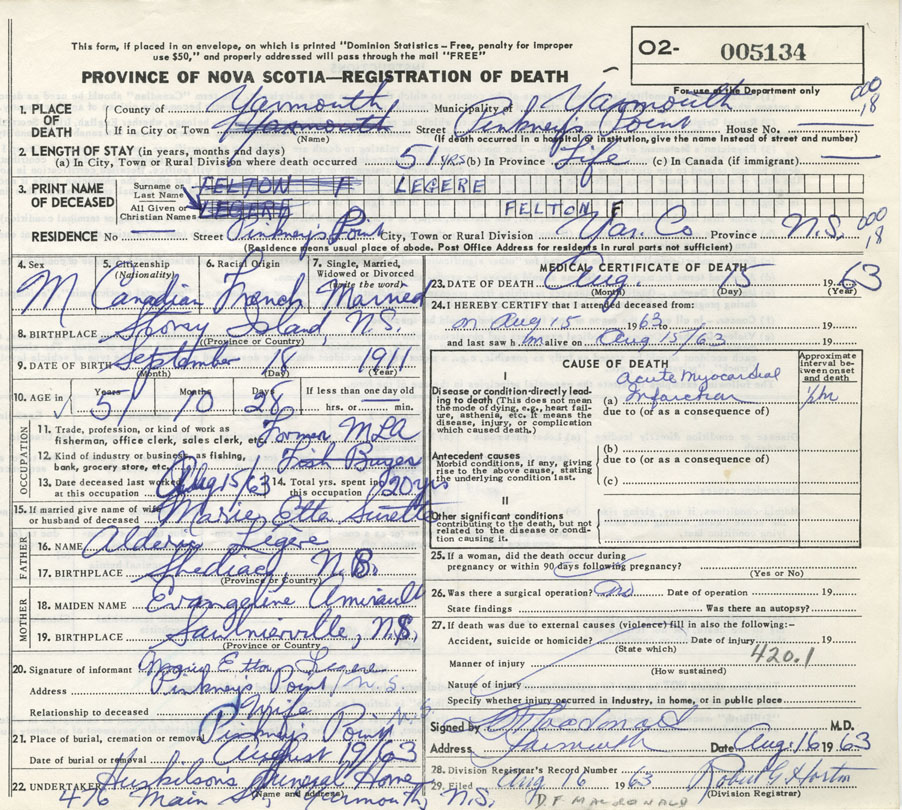 This form, if placed in an envelope, on which is printed "Dominion Statistics – Free, penalty for improper
use $50," and properly addressed will pass through the mail "FREE"
O2- 005134
PROVINCE OF NOVA SCOTIA—REGISTRATION OF DEATH
For use of the Department only
1. PLACE OF DEATH
County of Yarmouth Municipality of Yarmouth
000,8
If in City or Town Yarmouth Street Pinkney's Point House No. —
(Name) (If death occurred in a hospital or institution, give name instead of street and number)
2. LENGTH OF STAY (in years, months and days)
(a) In City, Town or Rural Division where death occurred 51 yrs (b) In Province Life (c) In Canada (if immigrant) —
3. PRINT NAME OF DECEASED
Surname or Last Name FELTON F LEGERE
All Given or Christian Names LEGERE FELTON F
RESIDENCE No — Street Pinkney's Point City, Town or Rural Division Yar. Co Province N.S.
000,8
(Residence means usual place of abode. Post Office Address for residents in rural parts not sufficient)
4. Sex M
5. Citizenship (Nationality) Canadian
6. Racial Origin French
7. Single, Married, Widowed or Divorced (write the word) Married
8. BIRTHPLACE Island, N.S.
(Province or Country)
9. DATE OF BIRTH September 18 1911
(Month) (Day) (Year)
10. AGE in Years 51 Months 10 Days 28 If less than one day old
hrs. or — min.
OCCUPATION
11. Trade, profession or kind of work as fisherman, office clerk, sales clerk, etc. Former MLA
12. Kind of industry or business, as fishing, bank, grocery store, etc. Fish Buyer
13. Date deceased last worked at this occupation Aug 15/63 14. Total yrs. spent in this occupation 20 yrs
15. If married give name of wife or husband of deceased Marie Etta Surette
FATHER
16. NAME Alderic Legere
17. BIRTHPLACE Shediac, N.B.
(Province or Country)
MOTHER
18. MAIDEN NAME Evangeline Amirault
19. BIRTHPLACE Saulnierville, N.S.
(Province or Country)
20. Signature of informant Marie Etta Legere
Address Pinkney's Point, N.S.
Relationship to deceased Wife
21. Place of burial, cremation or removal Pinkney's Point N.S
Date of burial or removal August 19/63
22. UNDERTAKER Huskilson's Funeral Home
(Name and address)
476 Main St, Yarmouth, N.S.
MEDICAL CERTIFICATE OF DEATH
23. DATE OF DEATH Aug. 15 1963
(Month) (Day) (Year)
24. I HEREBY CERTIFY that I attended deceased from:
on Aug 15 1963 to 19
and last saw him alive on Aug 15/63 19
CAUSE OF DEATH
Approximate interval between onset and death
I
Disease or condition directly leading to death (This does not mean the mode of dying, e.g., heart failure, asthenia, etc. It means the disease, injury, or complication which caused death.)
(a) Acute Myocardial Infarction
due to (or as a consequence of)
Antecedent causes
Morbid conditions, if any, giving rise to the above cause, stating the underlying condition last.
(b)
due to (or as a consequence of)
(c)
II
Other significant conditions
contributing to the death, but not related to the disease or condition causing it.
25. If a woman, did the death occur during pregnancy or within 90 days following pregnancy?
(Yes or No)
26. Was there a surgical operation? no Date of operation 19
State findings Was there an autopsy?
27. If death was due to external causes (violence) fill in also the following:-
Accident, suicide or homicide? Date of injury 19
(State which)
420.1
Manner of injury
(How sustained)
Nature of injury
Specify whether injury occurred in industry, in home, or in public place
Signed by M.D.
Address Yarmouth Date Aug. 16 1963
28. Division Registrar's Record Number
29. Filed Aug 16 1963 Robert G Horton
(Division Registrar)
D.F. MACDONALD